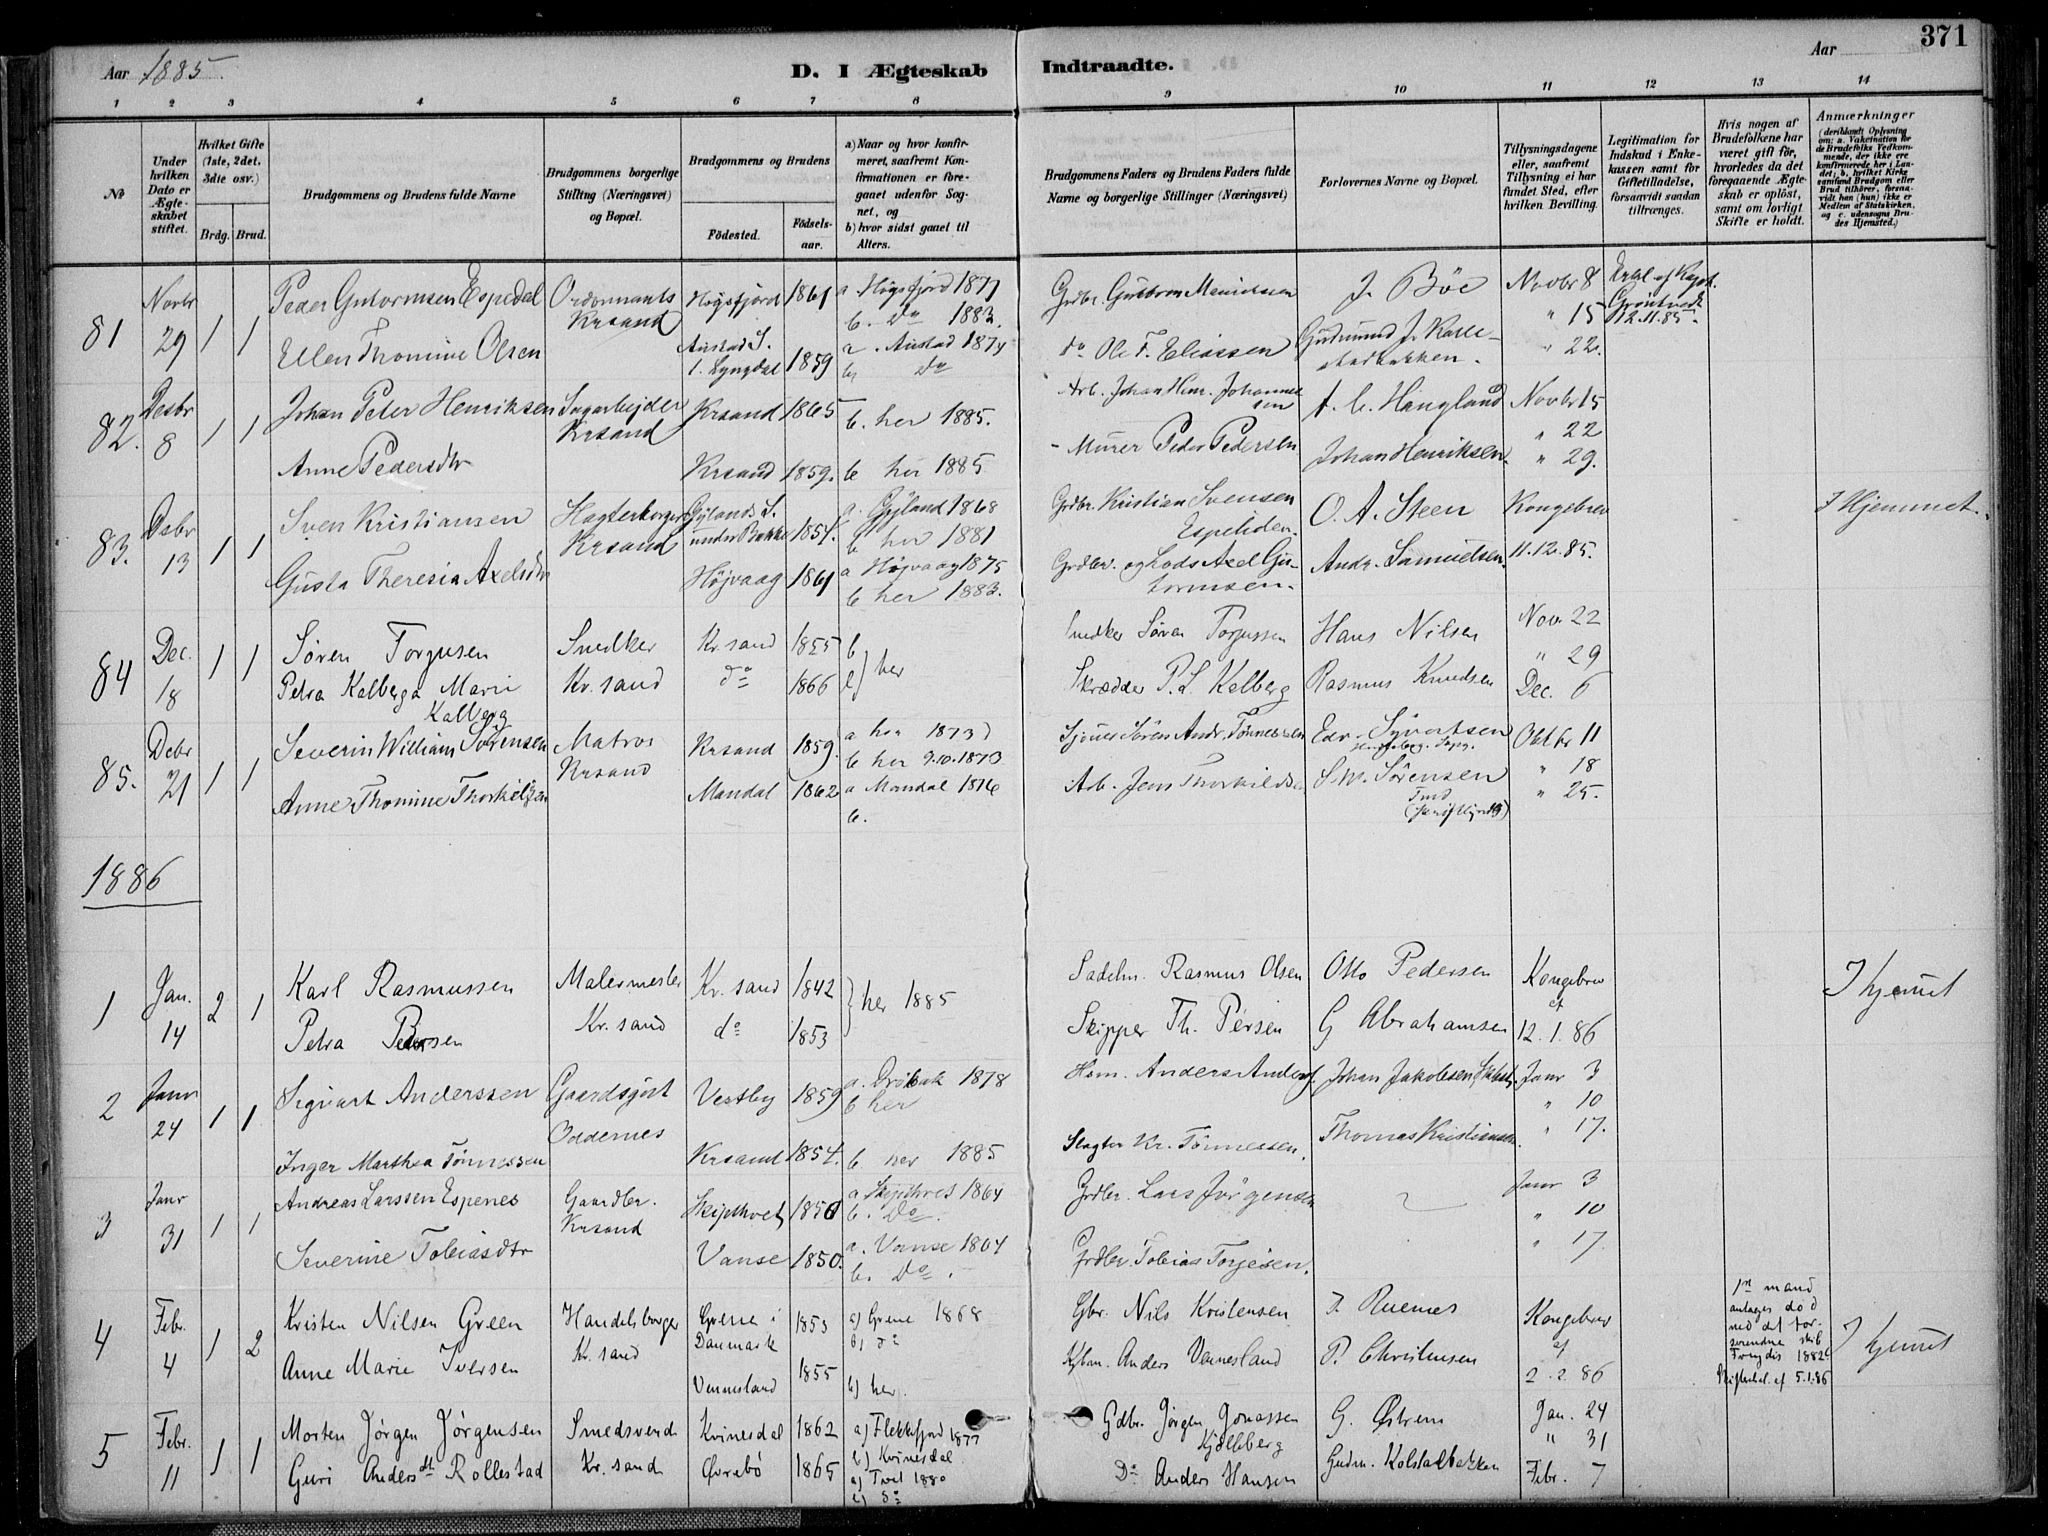 371
Aar 1885.
D. I Ægteskab Indtraadte.
Aar
1 2 3 4 5 6 7 8 9 10 11 12 13 14
№
Under hvilken Dato er Ægteskabet stiftet.
Hvilket Gifte (1ste, 2det, 3die osv.)
Brdg. Brud.
Brudgommens og Brudens fulde Navne
Brudgommens borgerlige Stilling (Næringsvei) og Bopæl.
Brudgommens og Brudens
Födested. Födselsaar.
a) Naar og hvor konfirmeret, saafremt Konfirmationen er foregaaet udenfor Sognet, og
b) hvor sidst gaaet til Alters.
Brudgommens Faders og Brudens Faders fulde Navne og borgerlige Stillinger (Næringsvei)
Forlovernes Navne og Bopæl.
Tillysningsdagene eller, saafremt Tillysning ei har fundet Sted, efter hvilken Bevilling.
Legitimation for Indskud i Enkekassen samt for Giftetilladelse, forsaavidt saadan tiltrænges.
Hvis nogen af Brudefolkene har været gift för, hvorledes da det foregaaende Ægteskab er oplöst, samt om lovligt Skifte er holdt.
Anmærkninger
(deriblandt Oplysning om: a. Vakcination for de Brudefolks Vedkommende, der ikke ere konfirmerede her i Landet; b. hvilket Kirkesamfund Brudgom eller Brud tilhörer, forsaavidt han (hun) ikke er Medlem af Statskirken, og c. udensogns Brudes Hjemsted.)
81 Novbr 29 1 1 Peder Gutormsen Espedal Ordonnants Krsand Högsfjord 1861 a Högsfjord 1877 b. Do 1883. Grdbr. Guttorm J. Böe Novbr 8 " 15 " 22. Erkl. af Kapt. 12.11.85.
Ellen Thomine Olsen Austad S. i. Lyngdal 1859 a. Austad 1874 b. Do do Ole T. Eliassen Gudmund
82. Desbr 8 1 1 Johan Peter Henriksen Sagarbejder Krsand Krsand 1865 b. her 1885. Arb. Johan Henr. Johannessen A. C. Haugland Novbr 15 " 22 " 29.
Anne Pedersdtr Krsand 1859. b her 1885 - Murer Peder Pedersen Johan Henriksen.
83. Debr 13 1 1 Sven Kristiansen Krsand Gylands S. under Bakke 1854. a. Gyland 1868 b her 1881 Grdbr. Kristian Svensen Espeliden. O. A. Steen Kongebrev 11.12.85. I Hjemmet.
Gusta Theresia Axelsdtr Höjvaag 1861 a Höjvaag 1875 b her 1883. Grdbr. og Lods Axel Guttormsen. Andr. Samuelsen.
84 Dec. 18 1 1 Søren Torgusen Snedker Kr.sand Kr.sand 1855 b her Snedker Søren Torgussen Hans Nilsen Nov. 22 " 29 Dec. 6
Petra Kalberga Marie Kalberg do 1866 b) Skrædder P. L. Kalberg Rasmus Knudsen
85. Debr 21 1 1 Severin William Sörensen Matros Krsand Krsand 1859. a her 1873 b her 9.10.1873 Sjouer Sören Andr. Tönnessen Edv. Syvertsen Oktbr 11 " 18 " 25.
Anne Thomine Thorkildsen Mandal 1862 a Mandal 1876 b. Arb. Jens Thorkildsen S. W. Sörensen
1886
1 Jan. 14 2 1 Karl Rasmussen Malermester Kr.sand Kr.sand 1842 her 1885 Sadelm. Rasmus Olsen Otto Pedersen Kongebrev af 12.1.86 I hjemmet
Petra Persen do 1853 Skipper Th. Persen G Abrahamsen
2 Janr 24 1 1 Sigvart Anderssen Gaardsgut Oddernes Vestby 1859 a. Dröbak 1878 b her Hsm. Anders Anders. Johan Jakobsen Janr 3 " 10 " 17.
Inger Marthea Tönnessen Krsand 1854. b her 1885 Slagter Kr. Tönnessen. Thomas Kristiansen.
3 Janr 31 1 1 Andreas Larssen Espenes Gaardbr. Krsand Skipthvet 1850 a Skipthvet 1864 b. Do. Grdbr. Lars Jörgensen Janr 3 " 10 " 17.
Severine Tobiasdtr Vanse 1850. a. Vanse 1864 b. Do. Grdbr. Tobias Torjesen.
4 Febr. 4 1 2 Kristen Nilsen Green Handelsborger Kr.sand Grene i Danmark 1853 a) Grene 1868 b) do Gbr. Nils Kristensen J. Ruenes Kongebrev af 2.2.86 1ste mand antages död med det forsvundne skib Frengdis 1882 Skiftebeh. af 5.1.86 I hjemmet
Anne Marie Iversen Vennesland 1855 b) her. Anders Vennesland P. Christensen
5 Febr. 11 1 1 Morten Jørgen Jørgensen Smedsvend Kr.sand Kvinesdal 1862 a) Flekkefjord 1877 b) Kvinesdal Gdbr. Jørgen Jonassen Kjelleberg G. Østrem Jan. 24 " 31 Febr. 7
Guri Andersdt Rollestad Øvrebø 1865 a) Tvet 1880 b) do Do Anders Hansen Gudm. Kolstadbakken